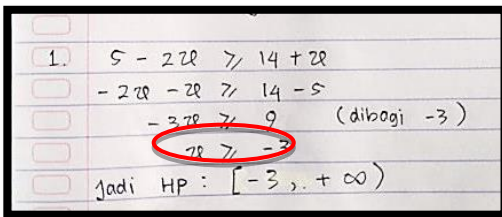 1. 5 - 2x ≥ 14 + x
- 2x - x ≥ 14 - 5
- 3x ≥ 9 (dibagi -3)
x ≥ -3
Jadi HP : [-3, + ∞)